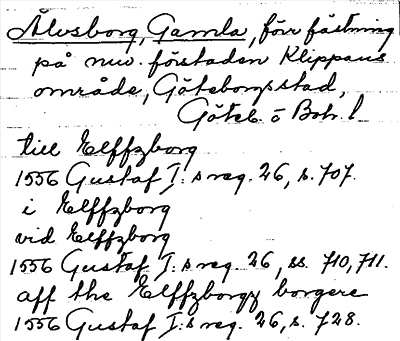 Älvsborg, Gamla, förr fästning
på nuv. förstaden Klippans
område, Göteborgs stad,
Göteb. o Boh. l.
till Elffzborg
1556 Gustaf I:s reg. 26, s. 707.
i Elffzborg
vid Elffzborg
1556 Gustaf I:s reg. 26, ss. 710, 711.
aff the Elffzborgz borgere
1556 Gustaf I:s reg. 26, s. 728.